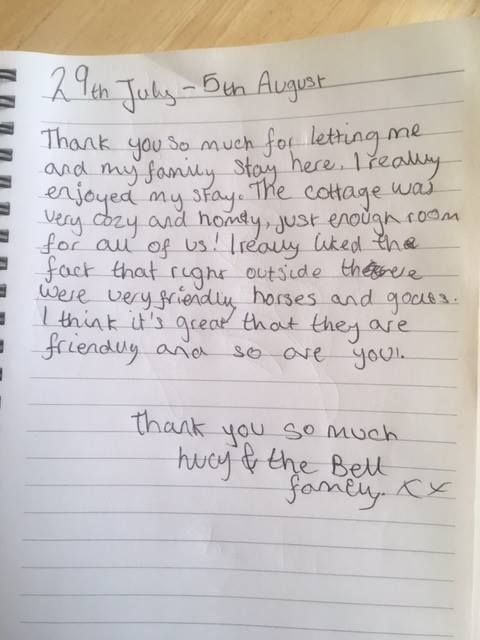 29th July - 5th August
Thank you so much for letting me
and my family stay here. I really
enjoyed my stay. The cottage was
very cozy and homey, just enough room
for all of us! I really liked the
fact that right outside there
were very friendly horses and goats.
I think it's great that they are
friendly and so are you!.
Thank you so much
Lucy & the Bell
family. XX